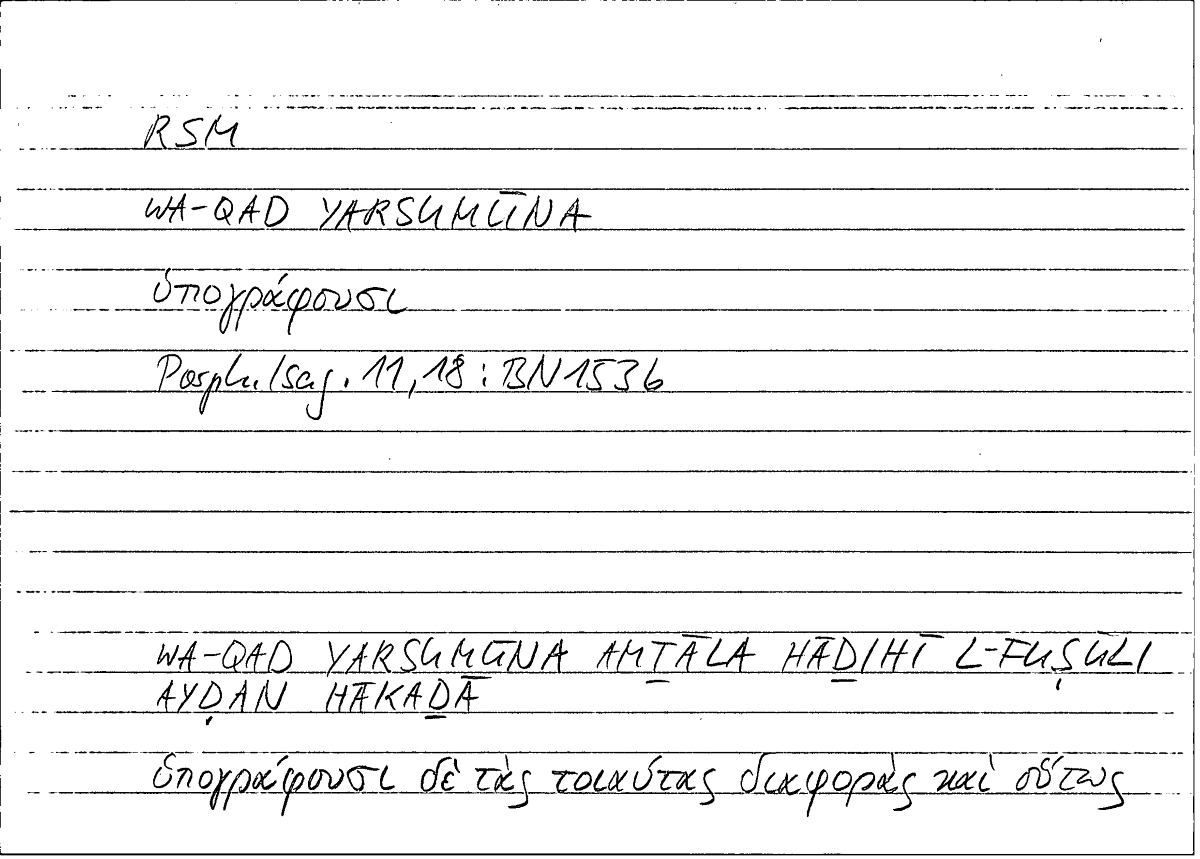 RSM
WA-QAD YARSUMŪNA
ὑπογράφουσι
Porph. Isag. 11,18 : BN 1536
WA-QAD YARSUMŪNA AMṮĀLA HĀḎIHĪ L-FUṢŪLI
AYḌAN HĀKAḎĀ
ὑπογράφουσι δὲ τὰς τοιαύτας διαφορὰς καὶ οὕτως